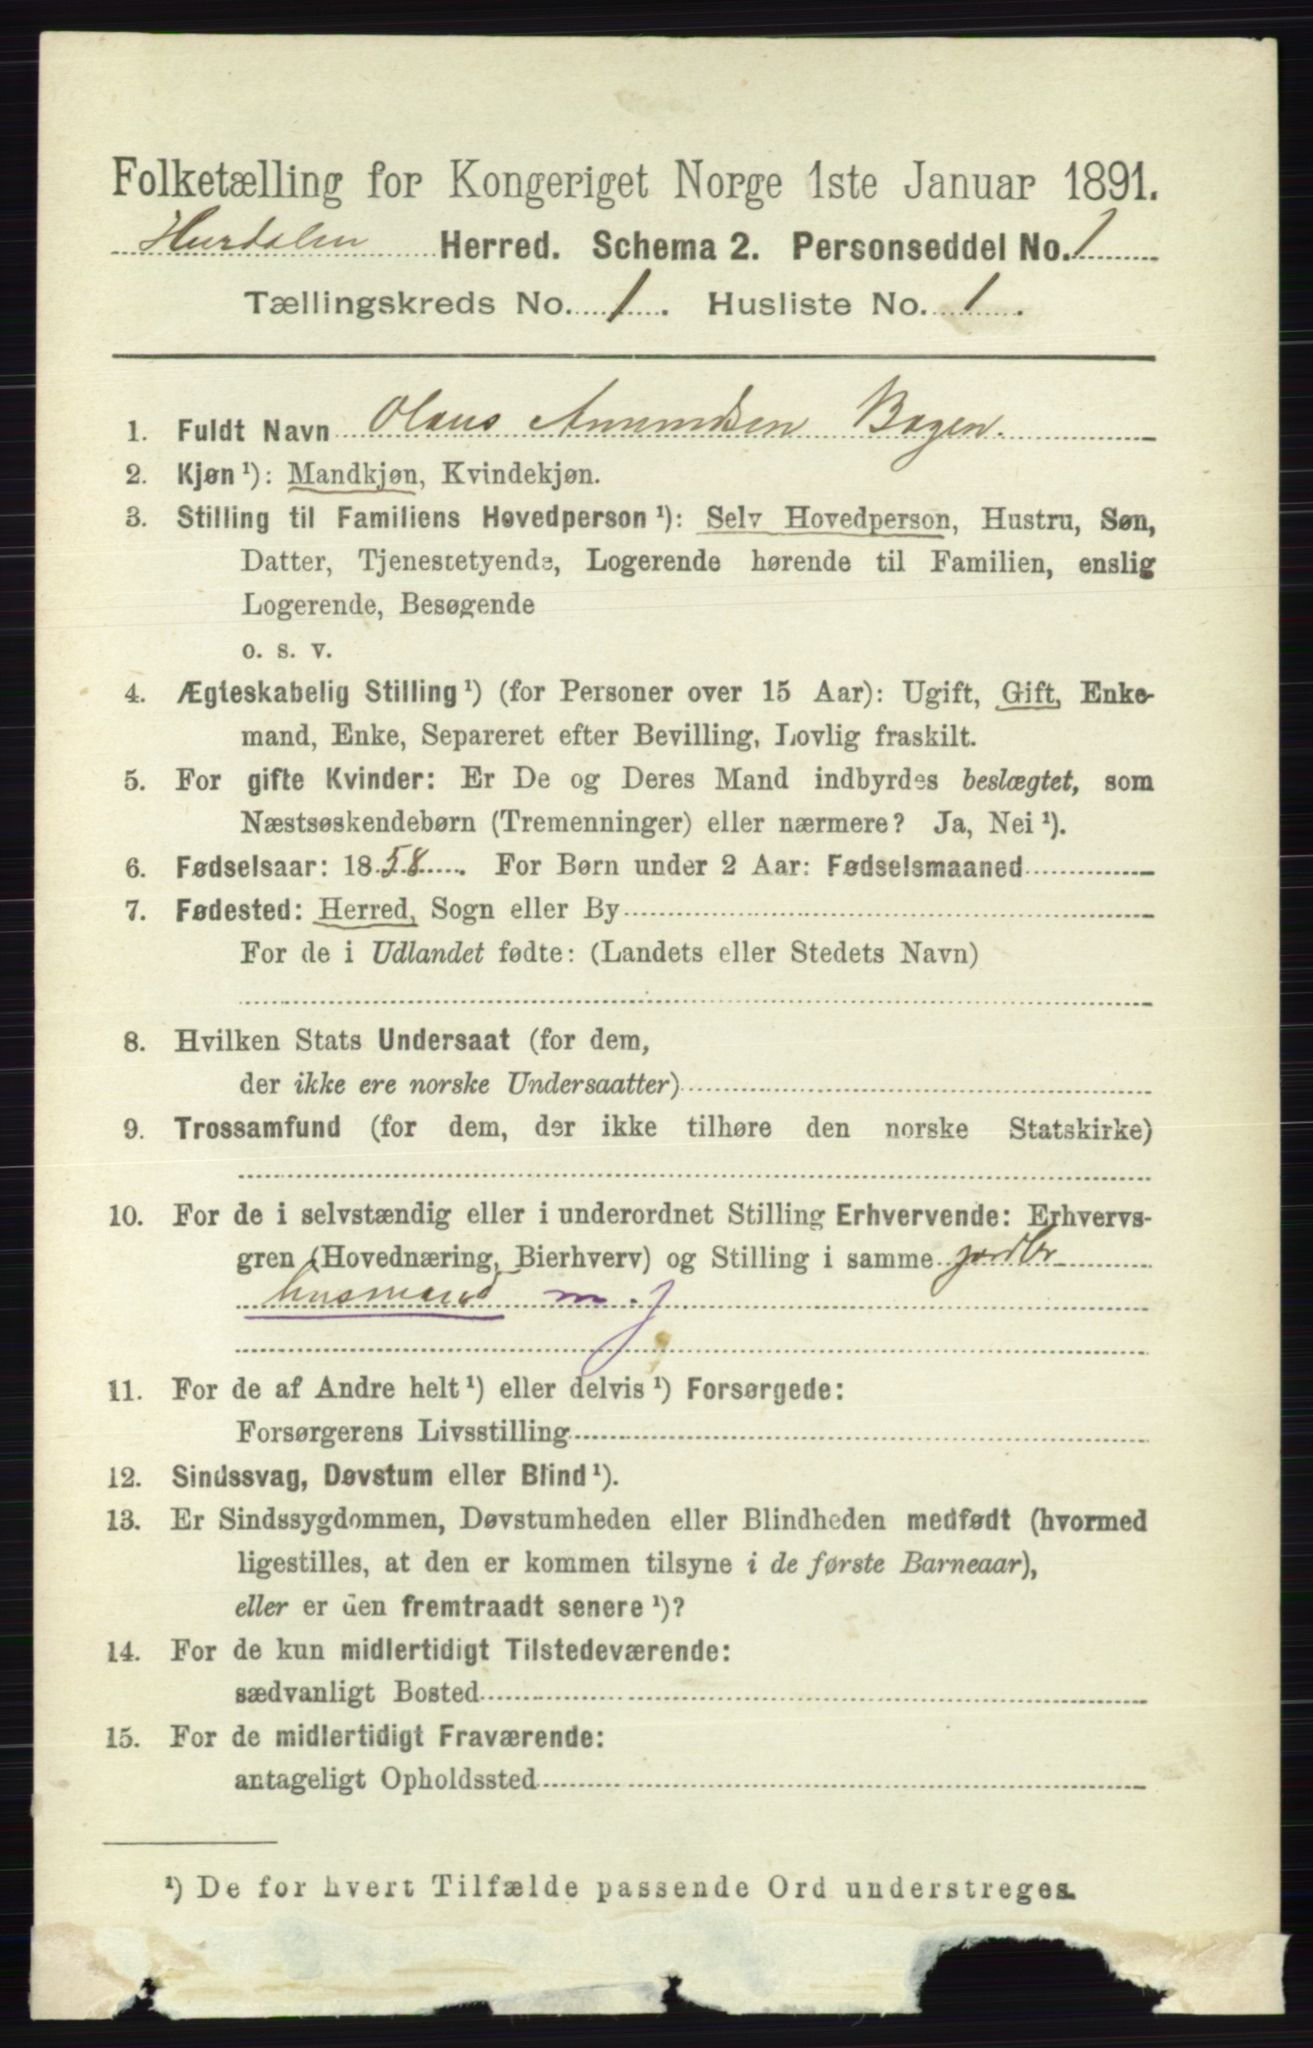 Folketælling for Kongeriget Norge 1ste Januar 1891.
Hurdalen Herred. Schema 2. Personseddel No. 1
Tællingskreds No. 1. Husliste No. 1.
1. Fuldt Navn Olaus Amundsen Bagen.
2. Kjøn ¹): Mandkjøn, Kvindekjøn.
3. Stilling til Familiens Hovedperson ¹): Selv Hovedperson, Hustru, Søn,
Datter, Tjenestetyende, Logerende hørende til Familien, enslig
Logerende, Besøgende
o. s. v.
4. Ægteskabelig Stilling ¹) (for Personer over 15 Aar): Ugift, Gift, Enke-
mand, Enke, Separeret efter Bevilling, Lovlig fraskilt.
5. For gifte Kvinder: Er De og Deres Mand indbyrdes beslægtet, som
Næstsøskendebørn (Tremenninger) eller nærmere? Ja, Nei ¹).
6. Fødselsaar: 1858. For Børn under 2 Aar: Fødselsmaaned
7. Fødested: Herred, Sogn eller By
For de i Udlandet fødte: (Landets eller Stedets Navn)
8. Hvilken Stats Undersaat (for dem,
der ikke ere norske Undersaatter)
9. Trossamfund (for dem, der ikke tilhøre den norske Statskirke)
10. For de i selvstændig eller i underordnet Stilling Erhvervende: Erhvervs-
gren (Hovednæring, Bierhverv) og Stilling i samme jordbr
husmand m. j
11. For de af Andre helt ¹) eller delvis ¹) Forsørgede:
Forsørgerens Livsstilling
12. Sindssvag, Døvstum eller Blind ¹).
13. Er Sindssygdommen, Døvstumheden eller Blindheden medfødt (hvormed
ligestilles, at den er kommen tilsyne i de første Barneaar),
eller er den fremtraadt senere ¹)?
14. For de kun midlertidigt Tilstedeværende:
sædvanligt Bosted
15. For de midlertidigt Fraværende:
antageligt Opholdssted
¹) De for hvert Tilfælde passende Ord understreges.